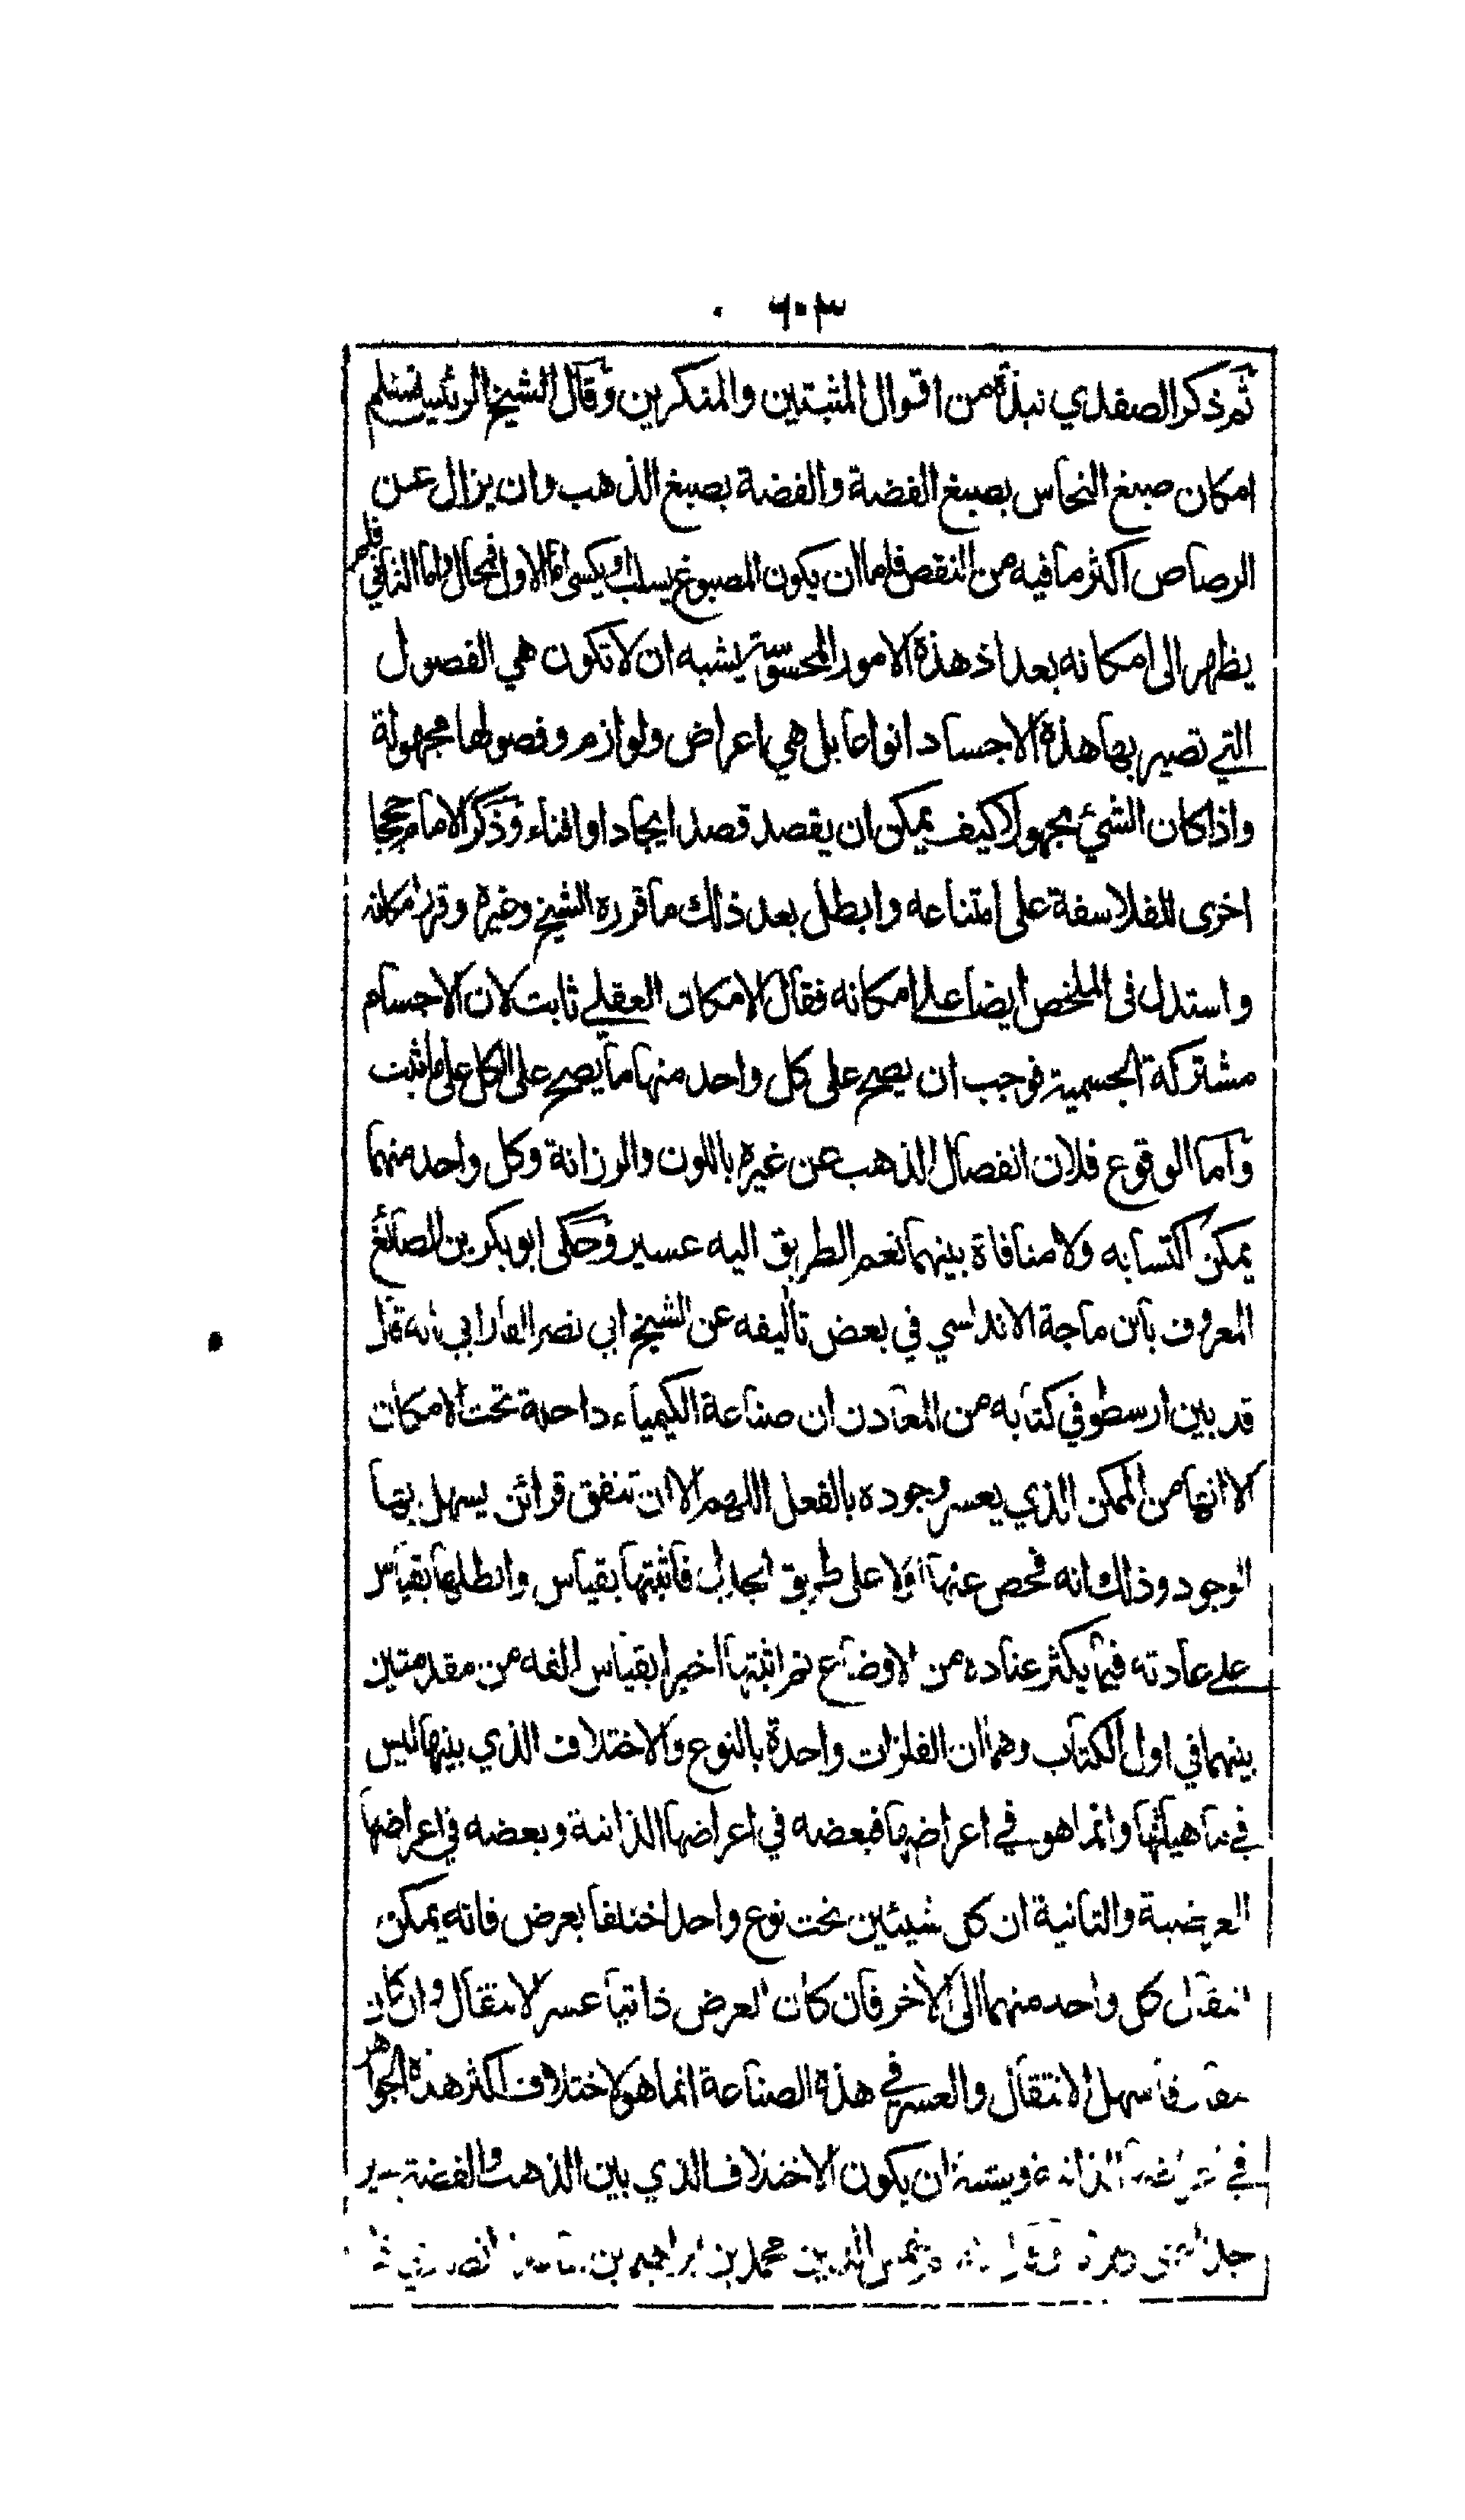 ٦٠٣
ثم ذكر الصفدي نبذة من اقوال المثبتين والمنكرين وقال الشيخ الرئيس نسلم
امكان صبغ النحاس بصبغ الفضة والفضة بصبغ الذهب وان يزال عن
الرصاص اكثر مافيه من النقص فاما ان يكون المصبوغ يسلب ويكسى اما الاول فمحال واما الثاني فلم
يظهر الى امكانه بعد اذ هذه الامور المحسوسة يشبه ان لا تكون هي الفصول
التي تصير بها هذه الاجساد انواعا بل هي اعراض ولوازم وفصولها مجهولة
واذا كان الشئ مجهولا كيف يمكن ان يقصد قصد ايجاد او افناء وذكر الامام حججا
اخرى للفلاسفة على امتناعه وابطل بعد ذلك ما قرره الشيخ وغيره وقرر امكانه
واستدل فى الملخص ايضا على امكانه فقال الامكان العقلي ثابت لان الاجسام
مشتركة الجسمية فوجب ان يصح على كل واحد منها ما يصح على الكل على ما ثبت
واما الوقوع فلان انفصال الذهب عن غيره باللون والرزانة وكل واحد منهما
يمكن اكتسابه ولا منافاة بينهما نعم الطريق اليه عسير وحكى ابو بكر بن الصائغ
المعروف بابن ماجة الاندلسي في بعض تأليفه عن الشيخ ابي نصر الفارابي بأنه قال
قد بين ارسطو في كتابه من المعادن ان صناعة الكيمياء داخلة تحت الامكان
الا انها من الممكن الذي يعسر وجوده بالفعل اللهم الا ان تتفق قرائن يسهل بها
الوجود وذلك انه فحص عنها اولا على طريق الجدل فاثبتها بقياس وابطلها بقياس
على عادته فيما يكثر عناده من الاوضاع ثم اثبتها اخيرا بقياس الفه من مقدمتين
بينهما في اول الكتاب وهما ان الفلزات واحدة بالنوع والاختلاف الذي بينها ليس
في ماهياتها وانما هو في اعراضها فبعضه في اعراضها الذاتية وبعضه في اعراضها
العرضية والثانية ان كل شيئين تحت نوع واحد اختلفا بعرض فانه يمكن
انتقال كل واحد منهما الى الآخر فان كان العرض ذاتيا عسر الانتقال وان كان
مفارقا سهل الانتقال والعسر في هذه الصناعة انما هو لاختلاف اكثر هذه الجواهر
في اعراضها الذاتية ويشبه ان يكون الاختلاف الذي بين الذهب والفضة يسير
جدا انتهى كلامه وقال شمس الدين محمد بن ابراهيم بن